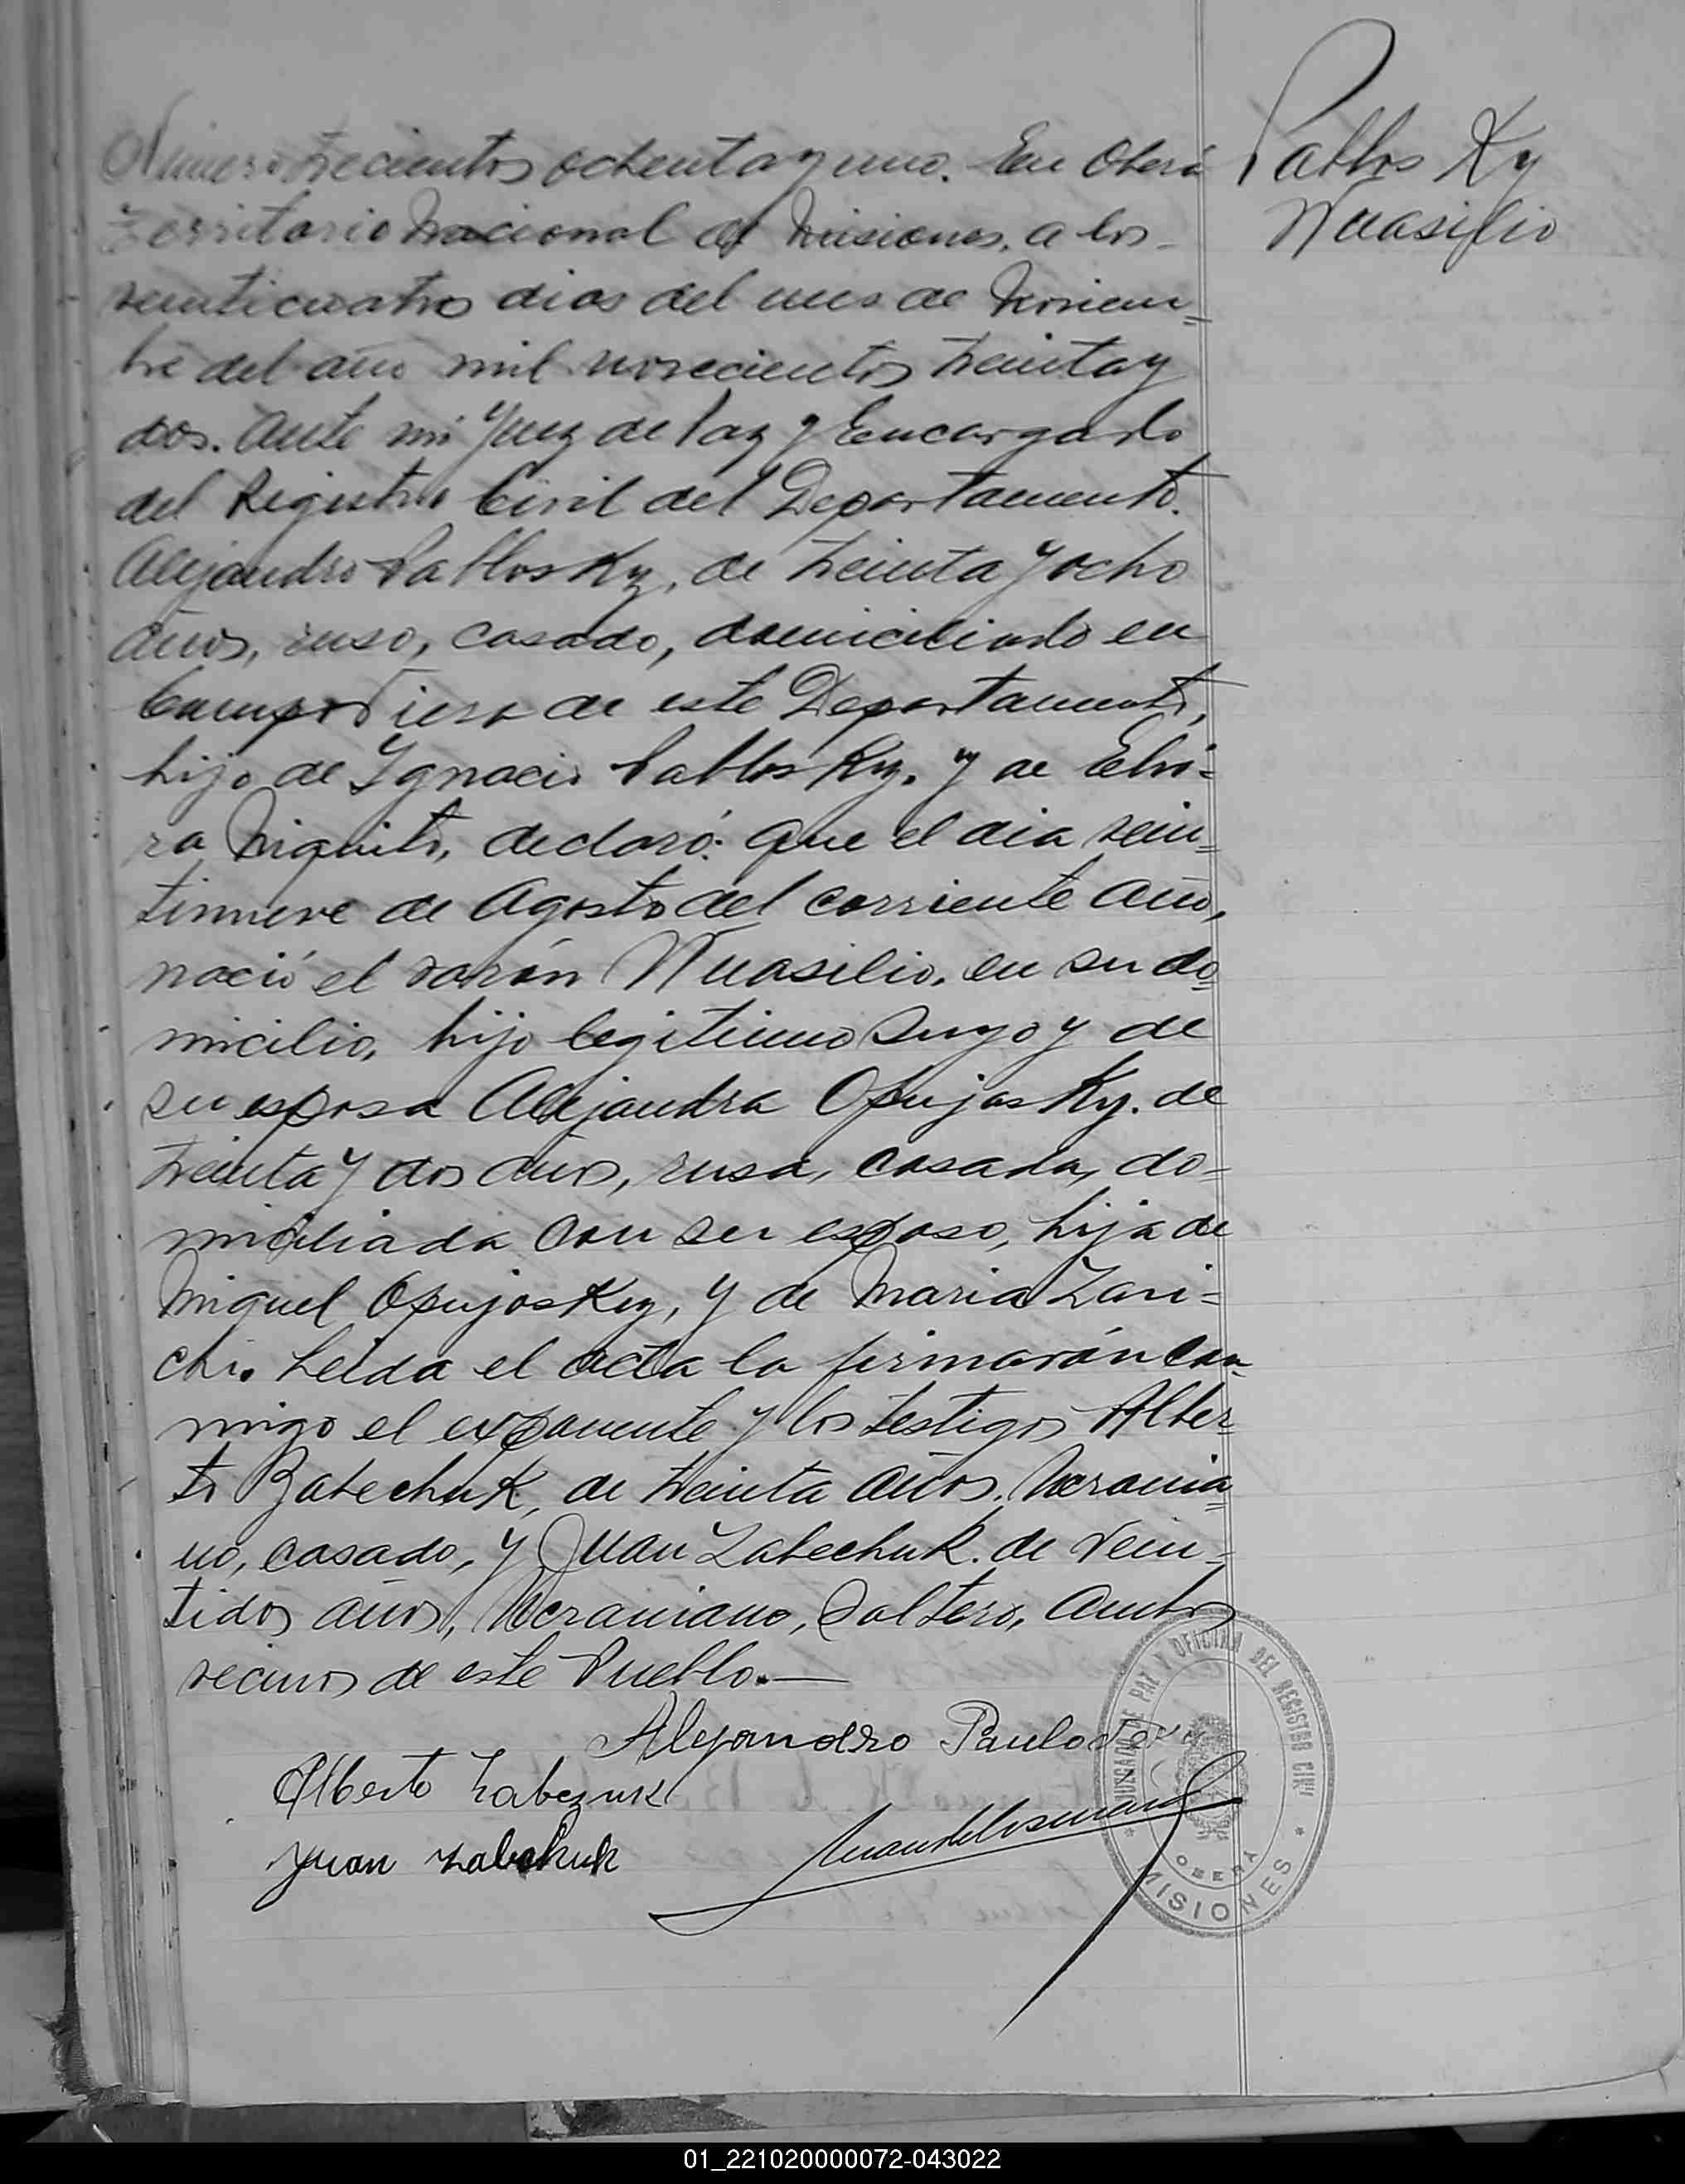 Pablos Ky
Wuasilio
Número trecientos ochenta y uno. En Oberá
Territorio Nacional de Misiones, a los
veinticuatro dias del mes de Noviem=
bre del año mil novecientos treinta y
dos. Ante mi Juez de Paz y Encargado
del Registro Civil del Departamento.
Alejandro Pablosky, de treinta y ocho
años, ruso, casado, domiciliado en
Campo Viera de este Departamento,
hijo de Ignacio Pablosky, y de Elvi=
ra Niquito, declaró: Que el dia vein=
tinueve de Agosto del corriente año,
nació el varón Wuasilio, en su do=
micilio, hijo legitimo suyo y de
su esposa Alejandra Opujasky, de
treinta y dos años, rusa, casada, do=
miciliada con su esposo, hija de
Miguel Opujosky, y de Maria Zari=
chi. Leida el acta la firmarón con=
migo el exponente y los testigos Alber=
to Zabechuk, de treinta años, Ucrania=
no, casado, y Juan Zabechuk, de vein=
tidos años, Ucraniano, Soltero, ambos
vecinos de este Pueblo.—
Alejandro Paulo
Alberto Zabezuk
Juan Zabchuk
JUZGADO DE PAZ Y OFICINA DEL REGISTRO CIVIL
OBERÁ
* MISIONES *
01_221020000072-043022